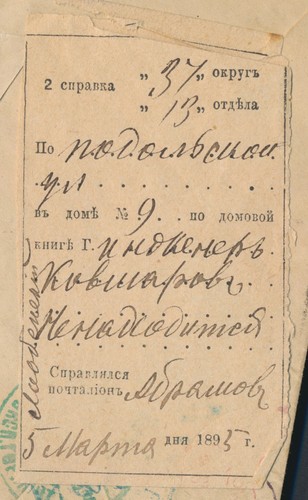 2 справка „ 37 „ округъ
„ 13 „ отдѣла
По Подольской
ул
въ домѣ № 9 по домовой
книгѣ Г. инженеръ
Ковшаровъ
Ненаходится
Справлялся
почталіонъ Абрамовъ
5 Марта дня 1895 г.